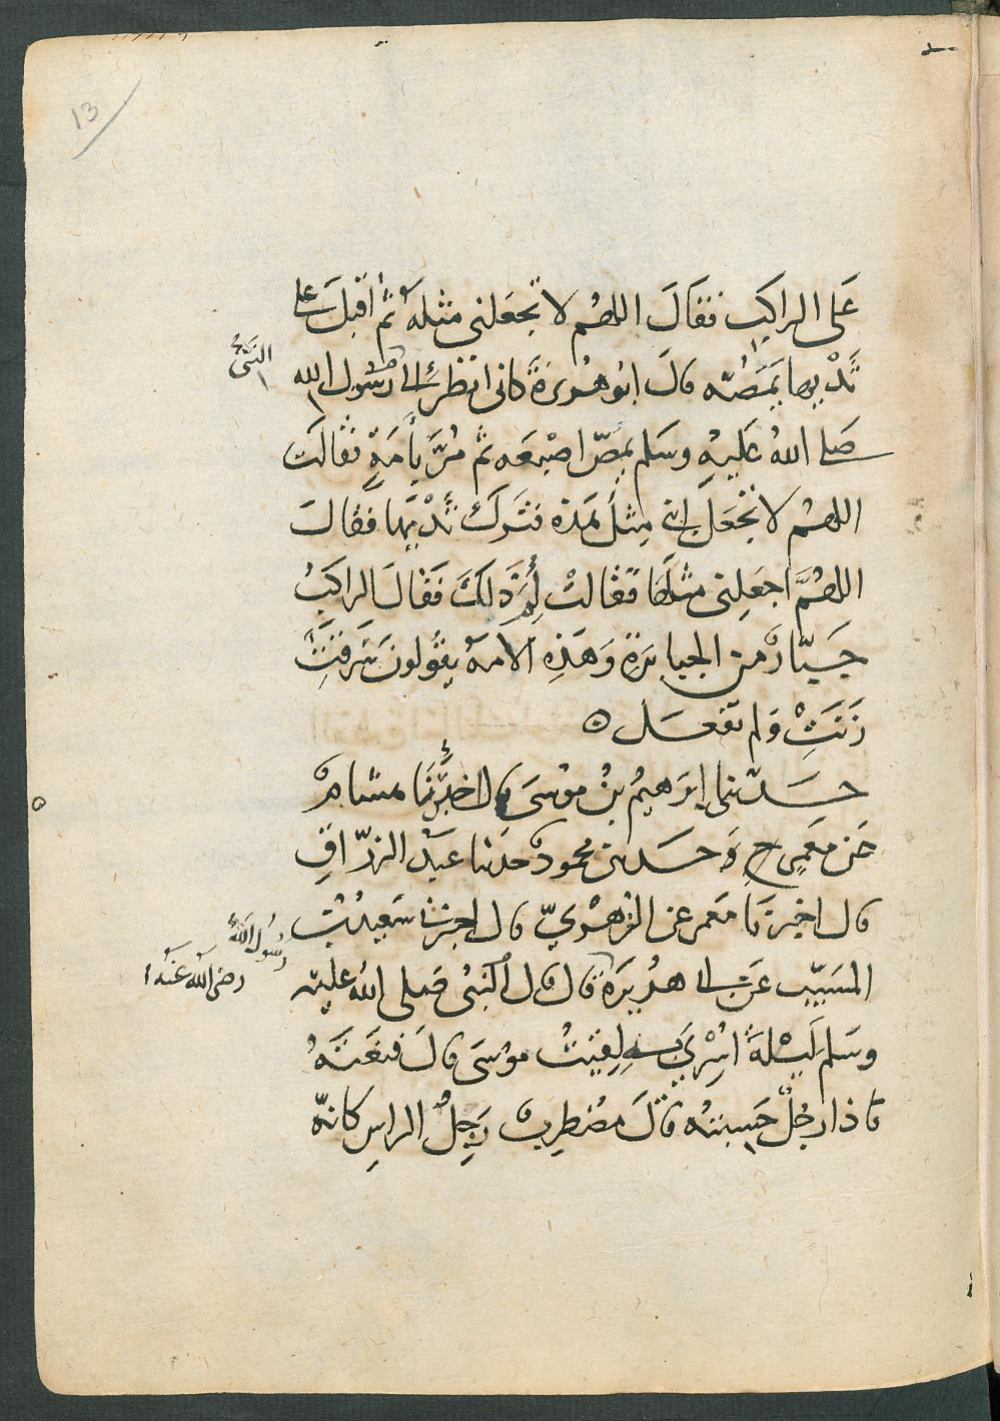 13
عَلى الراكِبِ فقَالَ اللهُم لا تجعَلنى مثلَهُ ثم اقبلَ على
ثَدْيِها يَمَصُّه قالَ ابُو هُرَيرَةَ كانى انظرُ الى رَسُول الله
النَّبِىِّ
صَلى اللهُ عَليهِ وسَلم يمصّ اصْبعَه ثم مُرَّ بأمَةٍ فقالَت
اللهُم لا تجْعَل ابنى مِثلَ هَذه فتَركَ ثَدْيَها فقالَ
اللهُمَّ اجعَلِنى مثلَها فقالتْ لِمَ ذَلكَ فَقالَ الراكِبُ
جَبّارٌ من الجبابرَةِ وَهَذِهِ الامَةُ يقُولونَ سَرقتِ
زَنَيتِ وَلم تفعَل ٥
حَدّثنى ابرَهيمُ بنُ موُسَى قال اخبَرَنَا هشامٌ
عَن مَعمَرٍ ح وَحَدثنى محمودٌ حدثنا عَبْدُ الرزّاقِ
قال اخبرَنا مَعمر عن الزهْريّ قال اخبرنى سَعِيدُ بنُ
المسَيّب عَن ابى هُرَيرَةَ قال قال النبىُّ صَلى اللهُ عليه
رَسُولُ اللهِ
رضى اللهُ عَنهُ
وسَلم لَيْلةَ اُسْرِيَ بهِ لقِيتُ موُسَى قالَ فنعَتَهُ
فاذا رَجُلٌ حَسِبتُه قالَ مُضطرِبٌ رَجِلُ الراسِ كانهُ